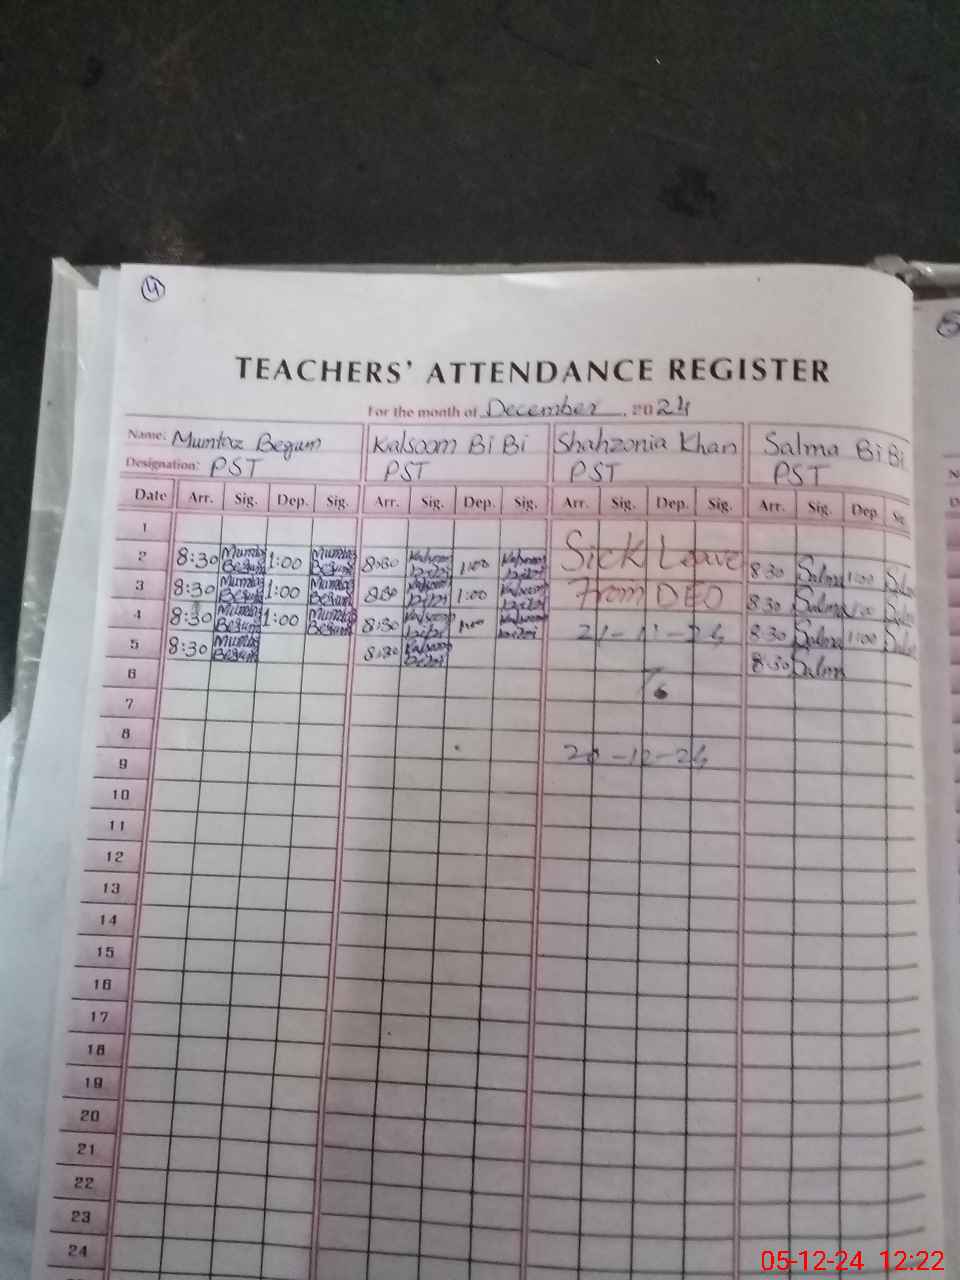 4
TEACHERS' ATTENDANCE REGISTER
For the month of December, 2024
Name: Mumtaz Begum Kalsoom Bi Bi Shahzonia Khan Salma Bi Bi
Designation: PST PST PST PST
Date Arr. Sig. Dep. Sig. Arr. Sig. Dep. Sig. Arr. Sig. Dep. Sig. Arr. Sig. Dep. Sig.
1
2 8:30 Mumtaz Begum 1:00 Mumtaz Begum 8:30 Kalsoom bibi 1:00 Kalsoom bibi Sick Leave 8:30 Salma 1:00 Salma
3 8:30 Mumtaz Begum 1:00 Mumtaz Begum 8:30 Kalsoom bibi 1:00 Kalsoom bibi From DEO 8:30 Salma 1:00 Salma
4 8:30 Mumtaz Begum 1:00 Mumtaz Begum 8:30 Kalsoom bibi 1:00 Kalsoom bibi 8:30 Salma 1:00 Salma
5 8:30 Mumtaz Begum 8:30 Kalsoom bibi 8:30 Salma
6
7
8
9
10
11
12
13
14
15
16
17
18
19
20
21
22
23
24
05-12-24 12:22